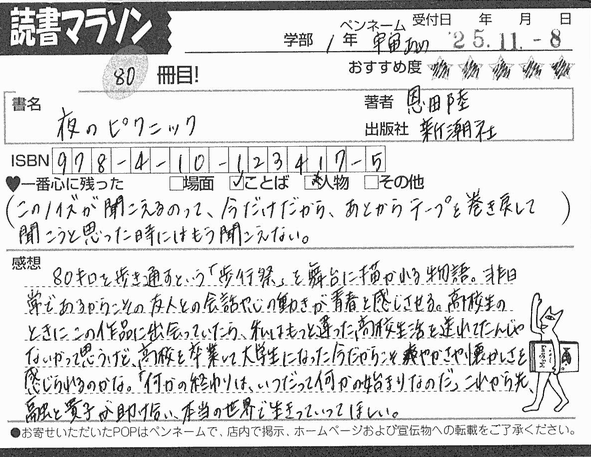 読書マラソン
80 冊目!
学部 1年 ペンネーム 宇宙 受付日 年 月 日 '25.11.-8
おすすめ度
書名 夜のピクニック
著者 恩田陸
出版社 新潮社
ISBN 978-4-10-123417-5
♥一番心に残った □場面 ☑ことば □人物 □その他
(このノイズが聞こえるのって、今だけだから、あとからテープを巻き戻して
聞こうと思った時にはもう聞こえない。)
感想
80キロを歩き通すという「歩行祭」を舞台に描かれる物語。非日
常であるからこその友人との会話や心の動きが青春を感じさせる。高校生の
ときにこの作品に出会っていたら、私はもっと違った高校生活を送れてたんじゃ
ないかって思うけど、高校を卒業して大学生になった今だからこそ爽やかさや懐かしさを
感じられるのかな。「何かの終わりは、いつだって何かの始まりなのだ」これから先、
融と貴子が助け合い、本当の世界で生きていってほしい。
●お寄せいただいたPOPはペンネームで、店内で掲示、ホームページおよび宣伝物への転載をご了承ください。